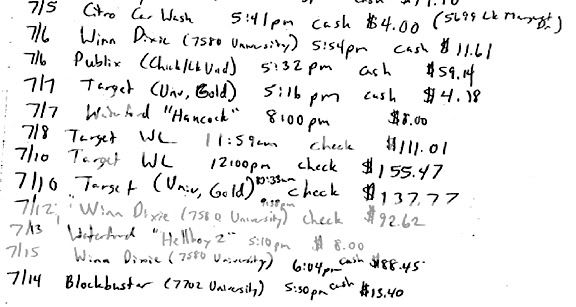 7/5 Citro Car Wash 5:41pm cash $4.00 (5699 Lk Margaret Dr.)
7/6 Winn Dixie (7580 University) 5:54pm cash $11.61
7/6 Publix (Chick/Lk Und) 5:32pm cash $59.14
7/7 Target (Univ, Gold) 5:16pm cash $4.18
7/7 Waterford "Hancock" 8:00pm $8.00
7/8 Target WL 11:59am check $111.01
7/10 Target WL 12:00pm check $155.47
7/10 Target (Univ, Gold) check $137.77
7/12 Winn Dixie (7580 University) check $92.62
7/13 Waterford "Hellboy 2" 5:10pm $8.00
7/15 Winn Dixie (7580 University) 6:04pm cash $88.45
7/14 Blockbuster (7702 University) 5:50pm cash $13.40